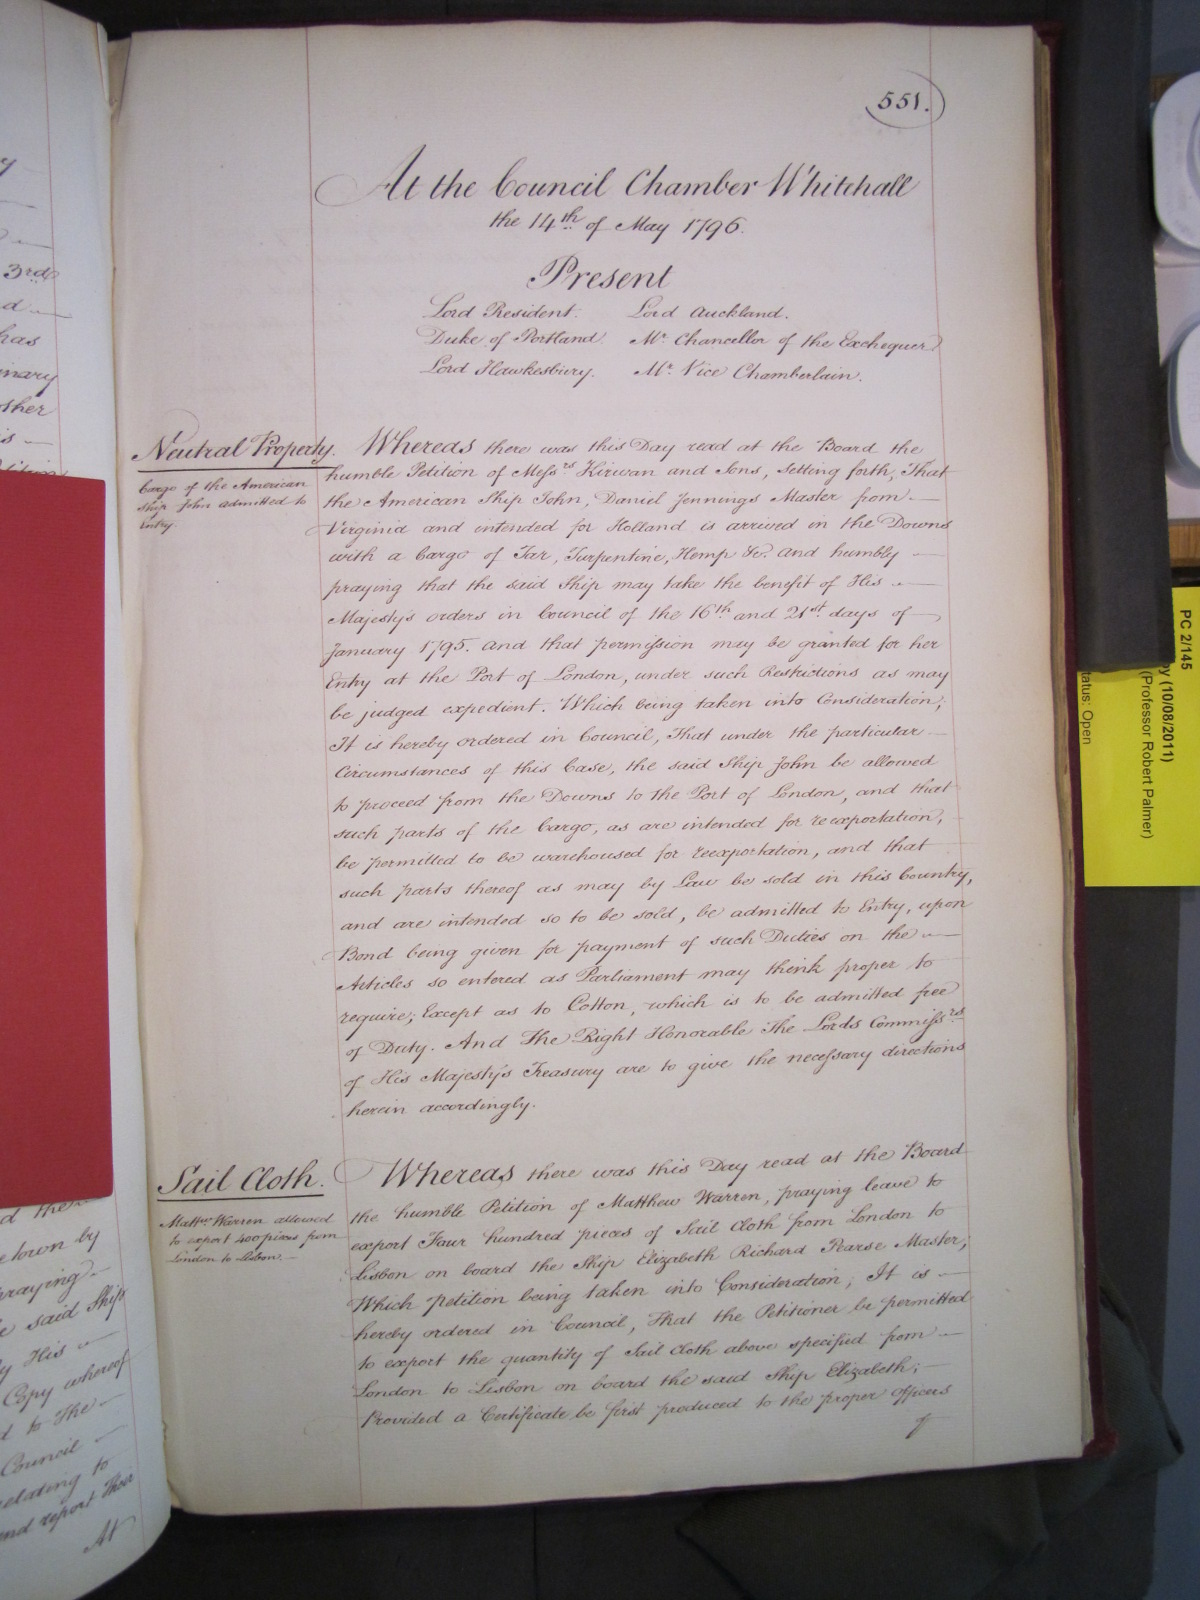 551.
At the Council Chamber Whitehall
the 14th of May 1796.
Present
Lord President. Lord Auckland.
Duke of Portland. Mr. Chancellor of the Exchequer
Lord Hawkesbury. Mr. Vice Chamberlain.
Neutral Property.
Cargo of the American
Ship John admitted to
Entry.
Whereas there was this Day read at the Board the
humble Petition of Messrs Kirwan and Sons, setting forth, That
the American Ship John, Daniel Jennings Master from
Virginia and intended for Holland is arrived in the Downs
with a Cargo of Tar, Turpentine, Hemp &c. and humbly
praying that the said Ship may take the benefit of His
Majesty's orders in Council of the 16th and 21st days of
January 1795. And that permission may be granted for her
Entry at the Port of London, under such Restrictions as may
be judged expedient. Which being taken into Consideration,
It is hereby ordered in Council, That under the particular
Circumstances of this Case, the said Ship John be allowed
to proceed from the Downs to the Port of London, and that
such parts of the Cargo, as are intended for reexportation,
be permitted to be warehoused for reexportation, and that
such parts thereof as may by Law be sold in this Country,
and are intended so to be sold, be admitted to Entry, upon
Bond being given for payment of such Duties on the
Articles so entered as Parliament may think proper to
require; Except as to Cotton, which is to be admitted free
of Duty. And The Right Honorable The Lords Commissrs
of His Majesty's Treasury are to give the necessary directions
herein accordingly.
Sail Cloth.
Mattw. Warren allowed
to export 400 pieces from
London to Lisbon.
Whereas there was this Day read at the Board
the humble Petition of Matthew Warren, praying leave to
export Four hundred pieces of Sail Cloth from London to
Lisbon on board the Ship Elizabeth Richard Pearse Master;
Which petition being taken into Consideration, It is
hereby ordered in Council, That the Petitioner be permitted
to export the quantity of Sail Cloth above specified from
London to Lisbon on board the said Ship Elizabeth;
Provided a Certificate be first produced to the proper officers
of
3rd
has
other
town by
praying
said Ship
by His
Copy whereof
d to The
Council
relating to
and report their
At
PC 2/145
(10/08/2011)
(Professor Robert Palmer)
tatus: Open